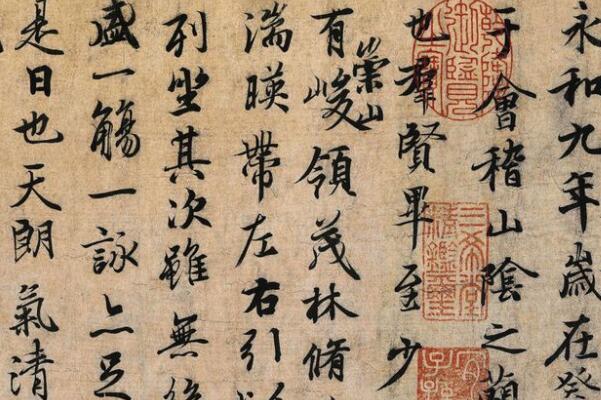 永和九年歲在癸
于會稽山陰之蘭
也羣賢畢至少
有崇山峻領茂林脩
湍暎帶左右引以
列坐其次雖無絲
盛一觴一詠亦足
是日也天朗氣清